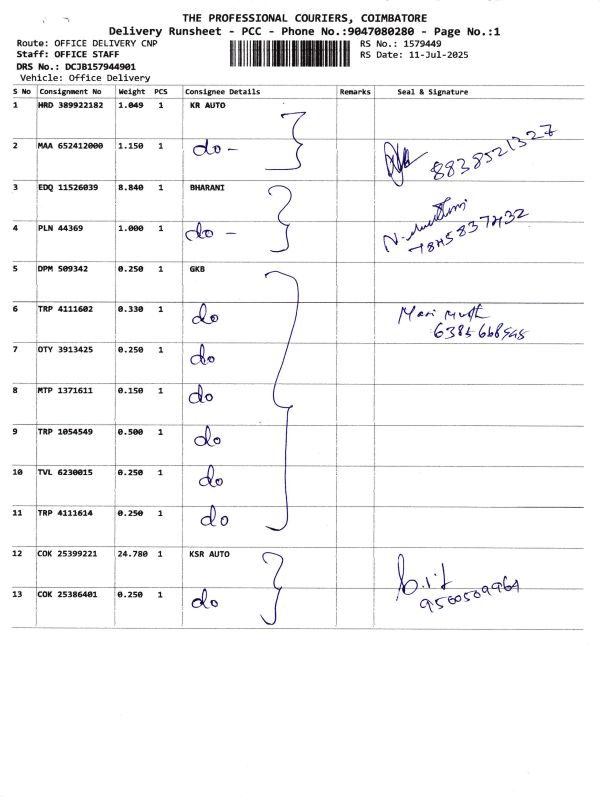 THE PROFESSIONAL COURIERS, COIMBATORE
Delivery Runsheet - PCC - Phone No.:9047080280 - Page No.:1
Route: OFFICE DELIVERY CNP
Staff: OFFICE STAFF
DRS No.: DCJB157944901
Vehicle: Office Delivery
RS No.: 1579449
RS Date: 11-Jul-2025
S No Consignment No Weight PCS Consignee Details Remarks Seal & Signature
1 HRD 389922182 1.049 1 KR AUTO
2 MAA 652412000 1.150 1 do - 8838521327
3 EDQ 11526039 8.840 1 BHARANI
4 PLN 44369 1.000 1 do - 7845837432
5 DPM 509342 0.250 1 GKB
6 TRP 4111602 0.330 1 do
7 OTY 3913425 0.250 1 do
8 MTP 1371611 0.150 1 do
9 TRP 1054549 0.500 1 do
10 TVL 6230015 0.250 1 do
11 TRP 4111614 0.250 1 do
12 COK 25399221 24.780 1 KSR AUTO
13 COK 25386401 0.250 1 do 9500509964